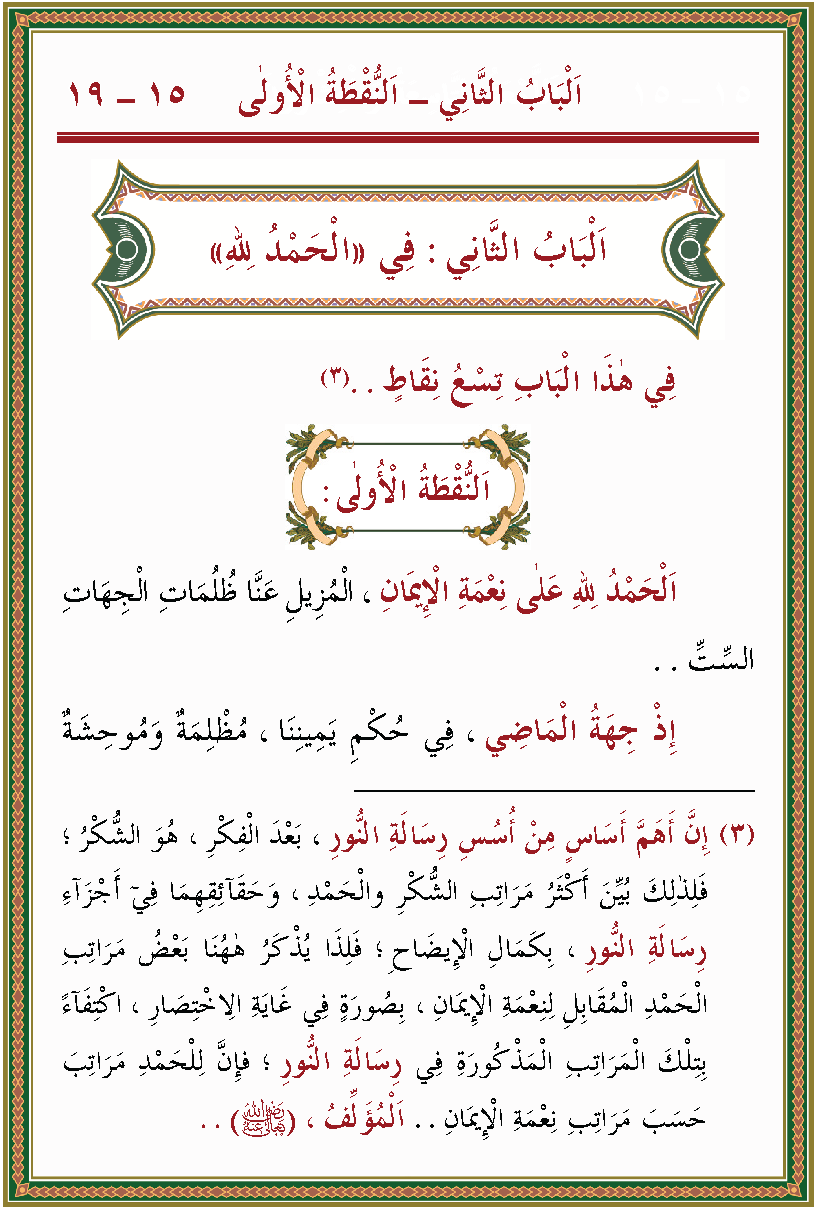 اَلْبَابُ الثَّانِي ـ اَلنُّقْطَةُ الْأُولٰى ١٥ ـ ١٩
اَلْبَابُ الثَّانِي : فِي «الْحَمْدُ لِلّٰهِ»
فِي هٰذَا الْبَابِ تِسْعُ نِقَاطٍ . .(٣)
اَلنُّقْطَةُ الْأُولٰى :
اَلْحَمْدُ لِلّٰهِ عَلٰى نِعْمَةِ الْإِيمَانِ ، الْمُزِيلِ عَنَّا ظُلُمَاتِ الْجِهَاتِ
السِّتِّ . .
إِذْ جِهَةُ الْمَاضِي ، فِي حُكْمِ يَمِينِنَا ، مُظْلِمَةٌ وَمُوحِشَةٌ
(٣) إِنَّ أَهَمَّ أَسَاسٍ مِنْ أُسُسِ رِسَالَةِ النُّورِ ، بَعْدَ الْفِكْرِ ، هُوَ الشُّكْرُ ؛
فَلِذٰلِكَ بُيِّنَ أَكْثَرُ مَرَاتِبِ الشُّكْرِ والْحَمْدِ ، وَحَقَآئِقِهِمَا فِيٓ أَجْزَآءِ
رِسَالَةِ النُّورِ ، بِكَمَالِ الْإِيضَاحِ ؛ فَلِذَا يُذْكَرُ هٰهُنَا بَعْضُ مَرَاتِبِ
الْحَمْدِ الْمُقَابِلِ لِنِعْمَةِ الْإِيمَانِ ، بِصُورَةٍ فِي غَايَةِ الِاخْتِصَارِ ، اكْتِفَآءً
بِتِلْكَ الْمَرَاتِبِ الْمَذْكُورَةِ فِي رِسَالَةِ النُّورِ ؛ فإِنَّ لِلْحَمْدِ مَرَاتِبَ
حَسَبَ مَرَاتِبِ نِعْمَةِ الْإِيمَانِ . . اَلْمُؤَلِّفُ ، (رضي الله تعالى عنه) . .